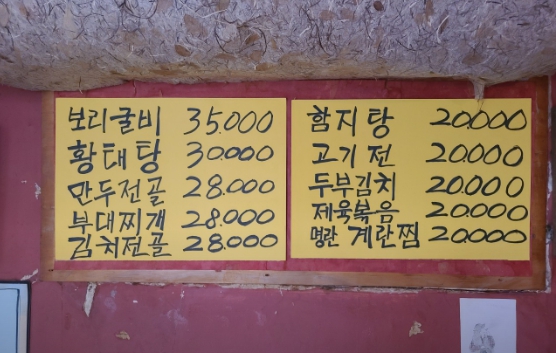 보리굴비 35.000
황태탕 30.000
만두전골 28.000
부대찌개 28.000
김치전골 28.000
함지탕 20.000
고기전 20.000
두부김치 20.000
제육볶음 20.000
명란 계란찜 20.000